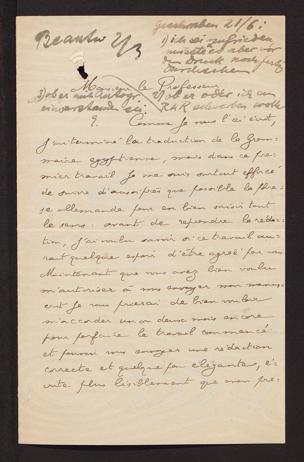 Beantw 2/3
Geschrieben 21/6:
1) ich sei zufrieden
möchte es aber vor
dem Druck noch
durchsehen
2) ob er
einverstanden sei
2) ob er oder ich an
schreiben solle
Monsieur le Professeur
Comme je vous l'ai écrit,
j'ai terminé la traduction de la Gram-
maire égyptienne, mais dans ce pre-
mier travail je me suis surtout efforcé
de suivre d'aussi près que possible la phra-
se allemande pour en bien saisir tout
le sens: avant de reprendre la rédac-
tion, j'ai voulu savoir si ce travail au-
rait quelque espoir d'être agréé par vous.
Maintenant que vous avez bien voulu
m'autoriser à vous envoyer mon manus-
crit je vous prierai de bien vouloir
m'accorder un ou deux mois encore
pour parfaire le travail commencé
et pouvoir vous envoyer une rédaction
correcte et quelque peu élégante, é-
crite plus lisiblement que mon pre-